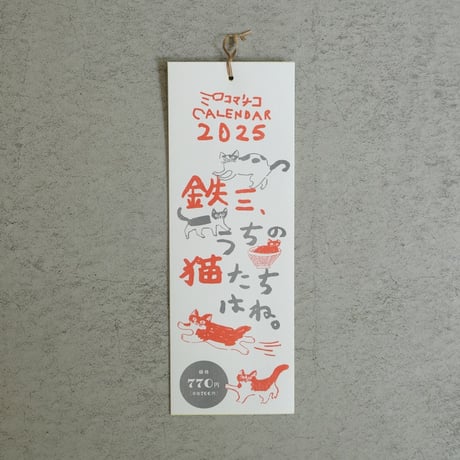 ミロコマチコ
CALENDAR
2025
鉄三、
うちの
猫たち
はね。
価格
770円
(本体700円)